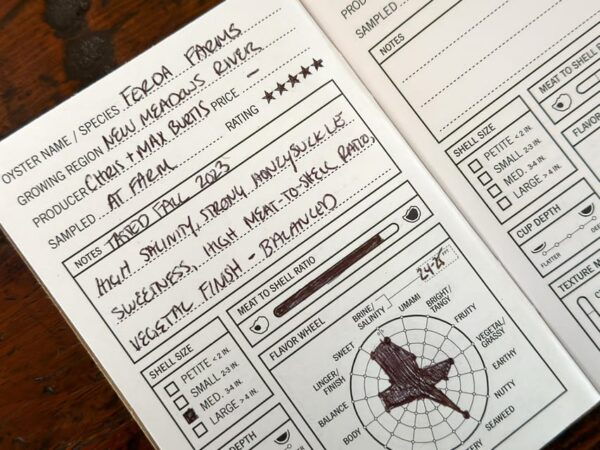 OYSTER NAME / SPECIES FERDA FARMS
GROWING REGION NEW MEADOWS RIVER
PRODUCER CHRIS + MAX BURTIS PRICE —
SAMPLED AT FARM RATING ★★★★★
NOTES TASTED FALL 2023
HIGH SALINITY, STRONG HONEYSUCKLE
SWEETNESS, HIGH MEAT-TO-SHELL RATIO,
VEGETAL FINISH - BALANCED
SHELL SIZE
PETITE < 2 IN.
SMALL 2-3 IN.
MED. 3-4 IN.
LARGE > 4 IN.
DEPTH
MEAT TO SHELL RATIO
FLAVOR WHEEL
BRINE/
SALINITY
UMAMI
BRIGHT/
TANGY
FRUITY
VEGETAL/
GRASSY
EARTHY
NUTTY
SEAWEED
SWEET
LINGER/
FINISH
BALANCE
BODY
SAMPLED
NOTES
SHELL SIZE
PETITE < 2 IN.
SMALL 2-3 IN.
MED. 3-4 IN.
LARGE > 4 IN.
CUP DEPTH
FLATTER
DEEPER
TEXTURE
MEAT TO SHELL
FLAVOR